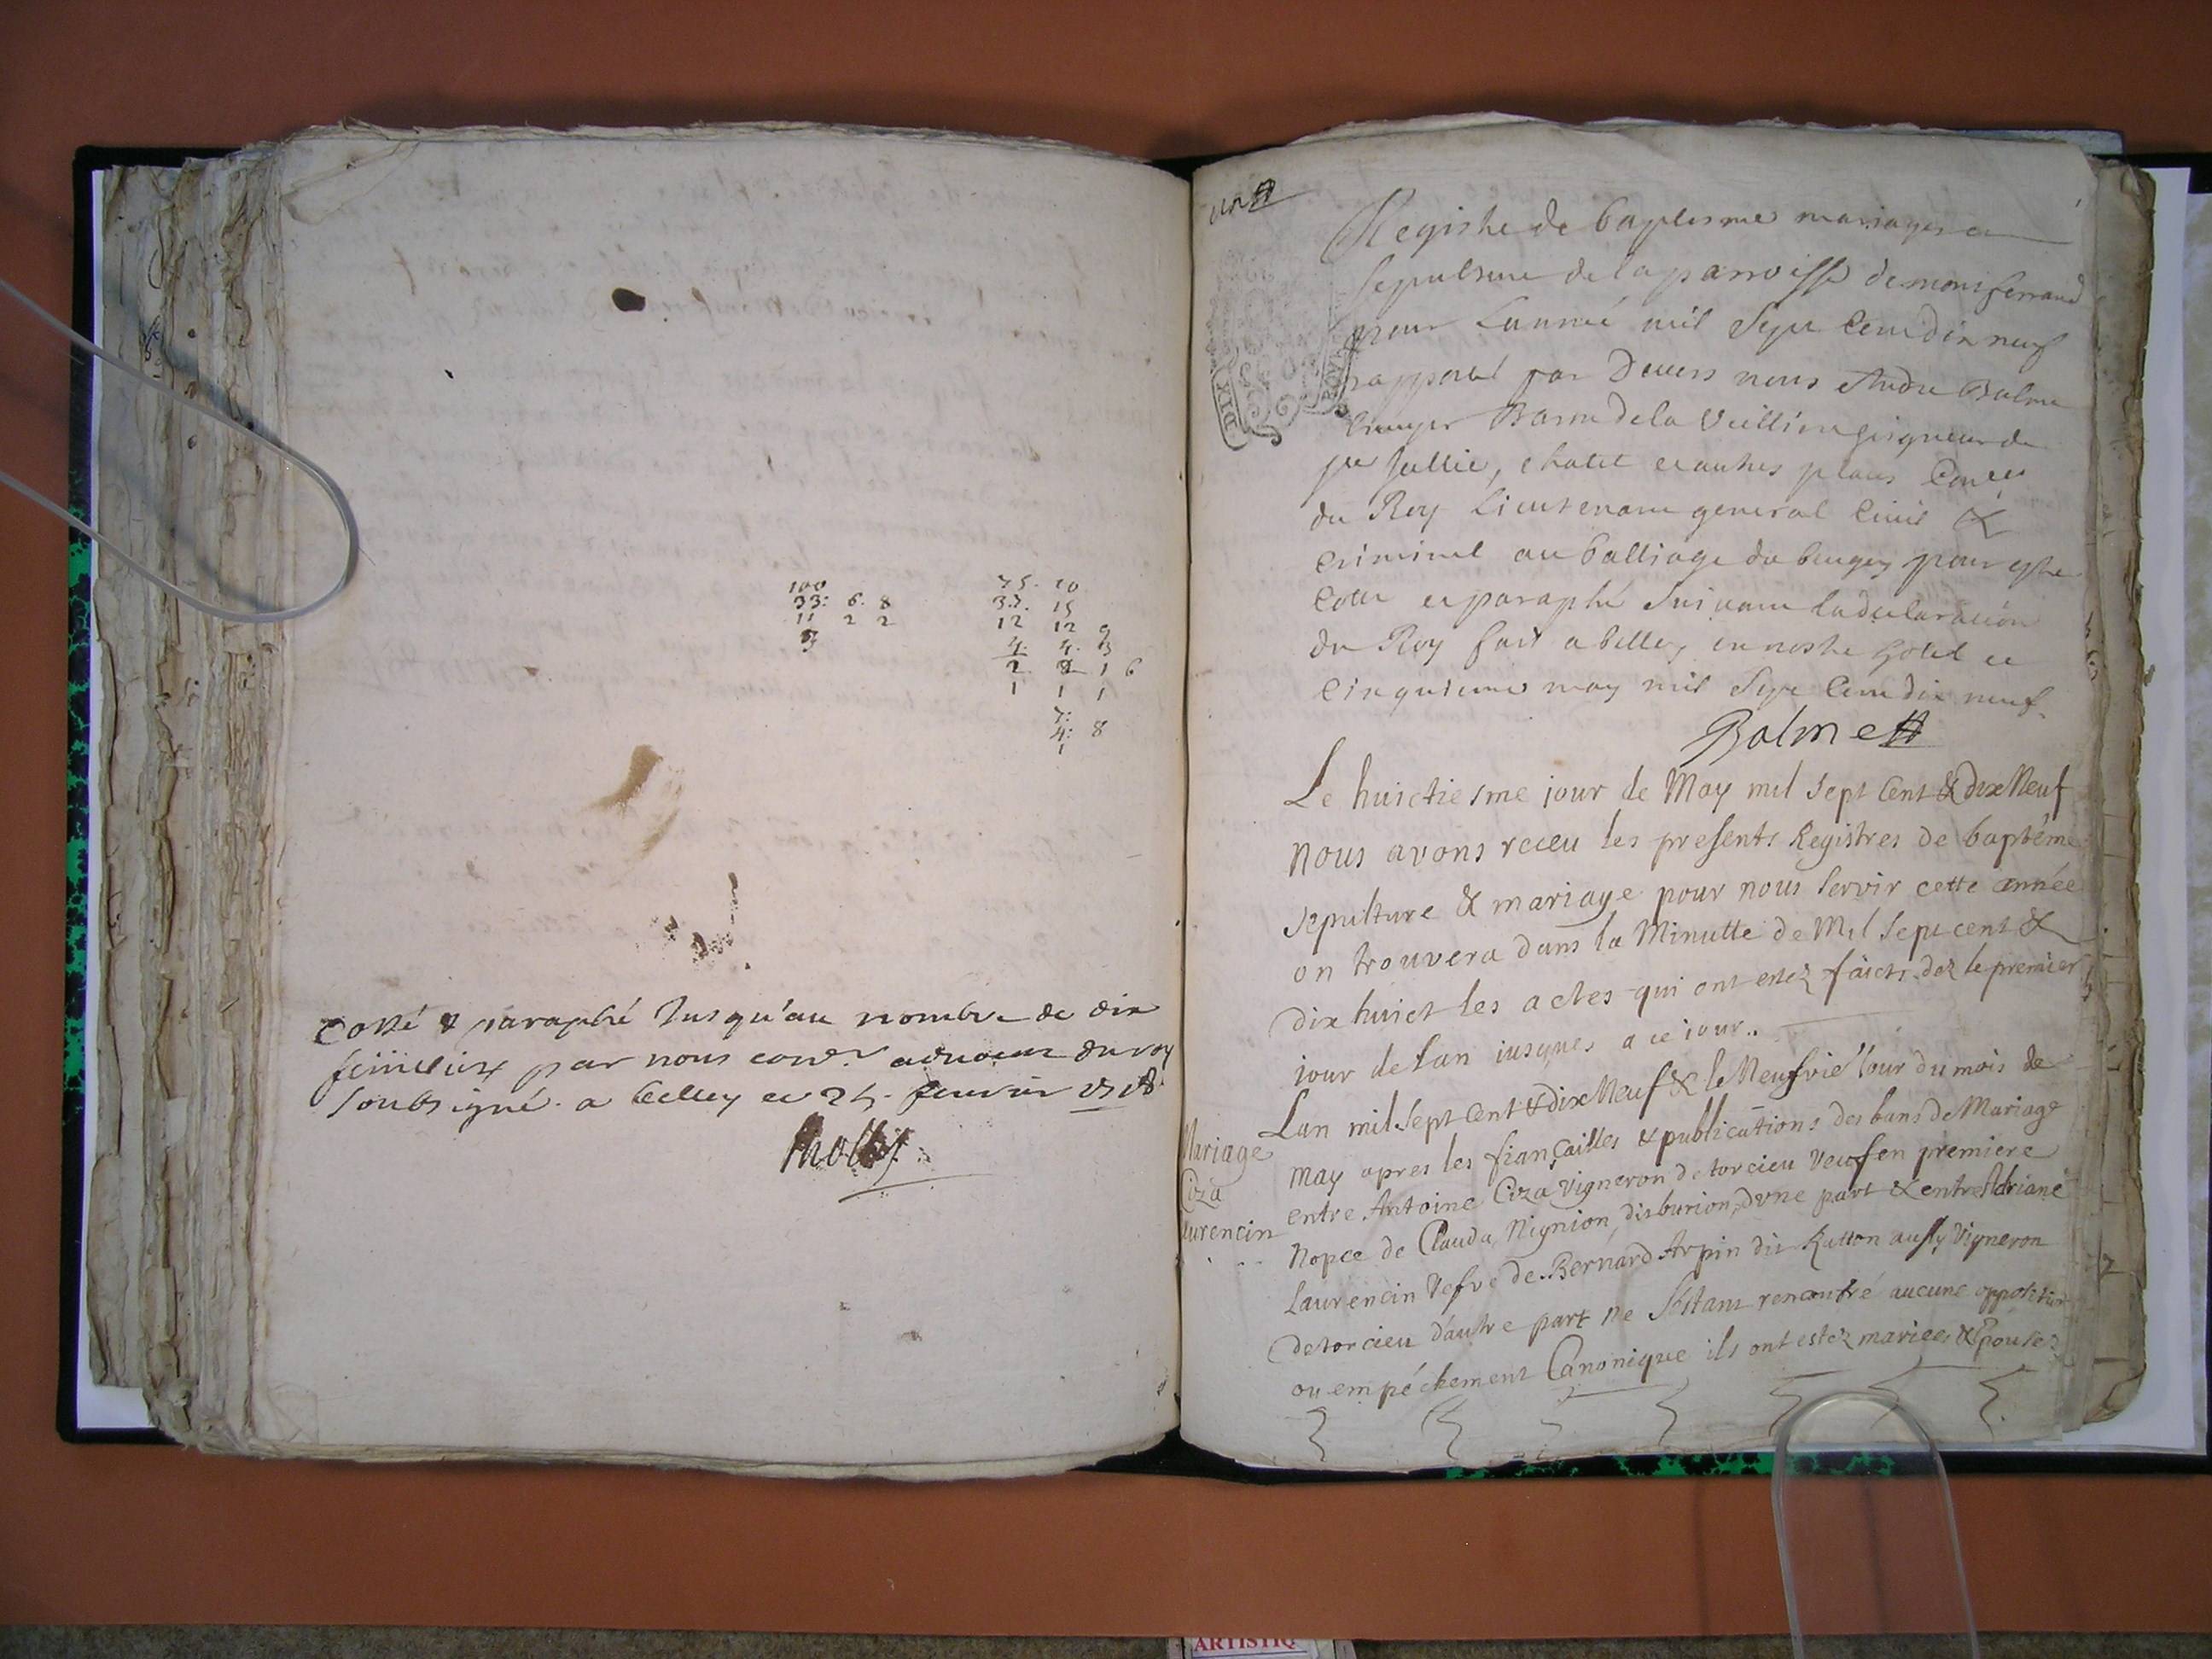 100
33: 6. 8
11 2 2
75. 10
37. 15
12 12 9
4. 4. 3
2. 2 1 6
1 1 1
7:
4: 8
1
Cotté & paraphé Jusqu'au nombre de dix
feüillets par nous coner advocat du roy
soubsigné. a belley ce 24. feuvrier 1718
un
Registre de baptesme mariages et
sepulture de la parroisse de montferrand
pour Lannée mil sept Cent dix neuf
rapporté par Devers nous André Balme
Ecuyer Baron de la Veillière seigneur de
jullie, chatel et autres places Coner
du Roy Lieutenant general Civil &
Criminel au balliage du bugey pour estre
Cotté et paraphé suivant la declaration
du Roy fait a belley en nostre hotel ce
Cinquieme may mil sept Cent dix neuf.
Balme
Le huictiesme jour de May mil sept Cent & dix Neuf
nous avons receu les presents Registres de baptême
sepulture & mariage pour nous servir cette année
on trouvera dans la Minutte de Mil sept cent &
dix huict les actes qui ont estez faicts dez le premier
iour de lan iusques a ce iour..
Mariage
Coza
Laurencin
Lan mil sept Cent & dix Neuf & le Neufvie Iour du mois de
May apres les fiançailles & publications des bans de Mariage
entre Antoine Coza Vigneron de torcieu Veuf en premiere
Nopce de Clauda Nignion disburion, dvne part & entre Adriane
Laurencin Vefve de Bernard Arpin dit Ratton aussy Vigneron
de torcieu d'autre part ne sétant rencontré aucune opposition
ou empéchement Canonique ils ont estez mariees & Epousez
ARTISTIQ
DIX